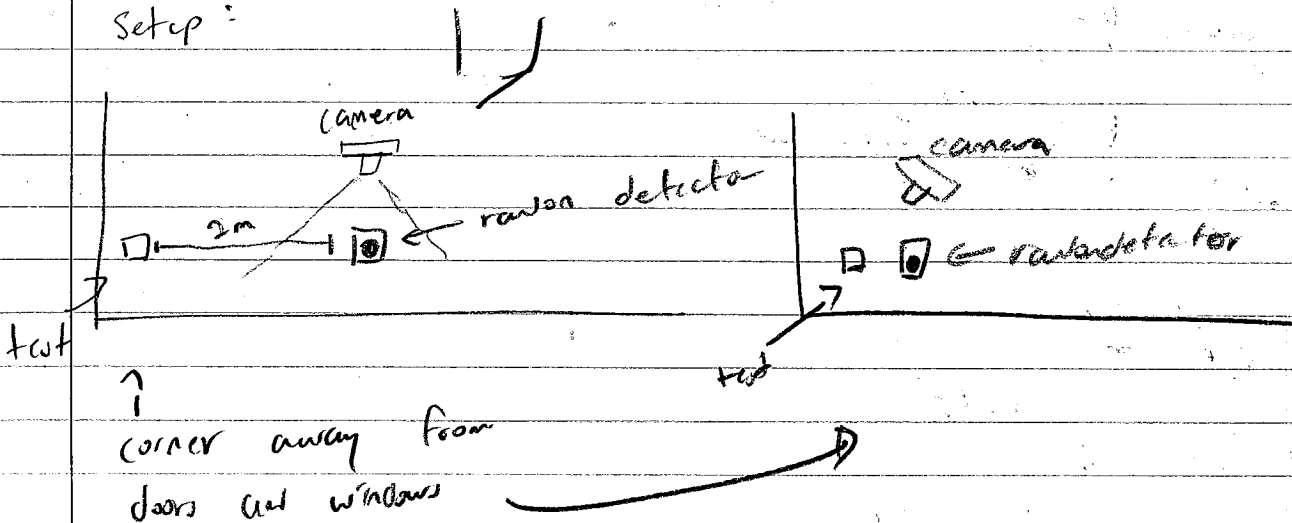 Setup:
camera
camera
2m
radon detector
radon detector
test
test
corner away from
doors and windows